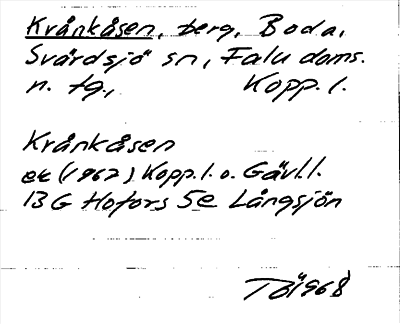 Krånkåsen, berg, Boda,
Svärdsjö sn, Falu doms.
n. tg., Kopp. l.
Krånkåsen
ek (1967) Kopp. l. o. Gävl. l.
13 G Hofors 5e Långsjön
1968